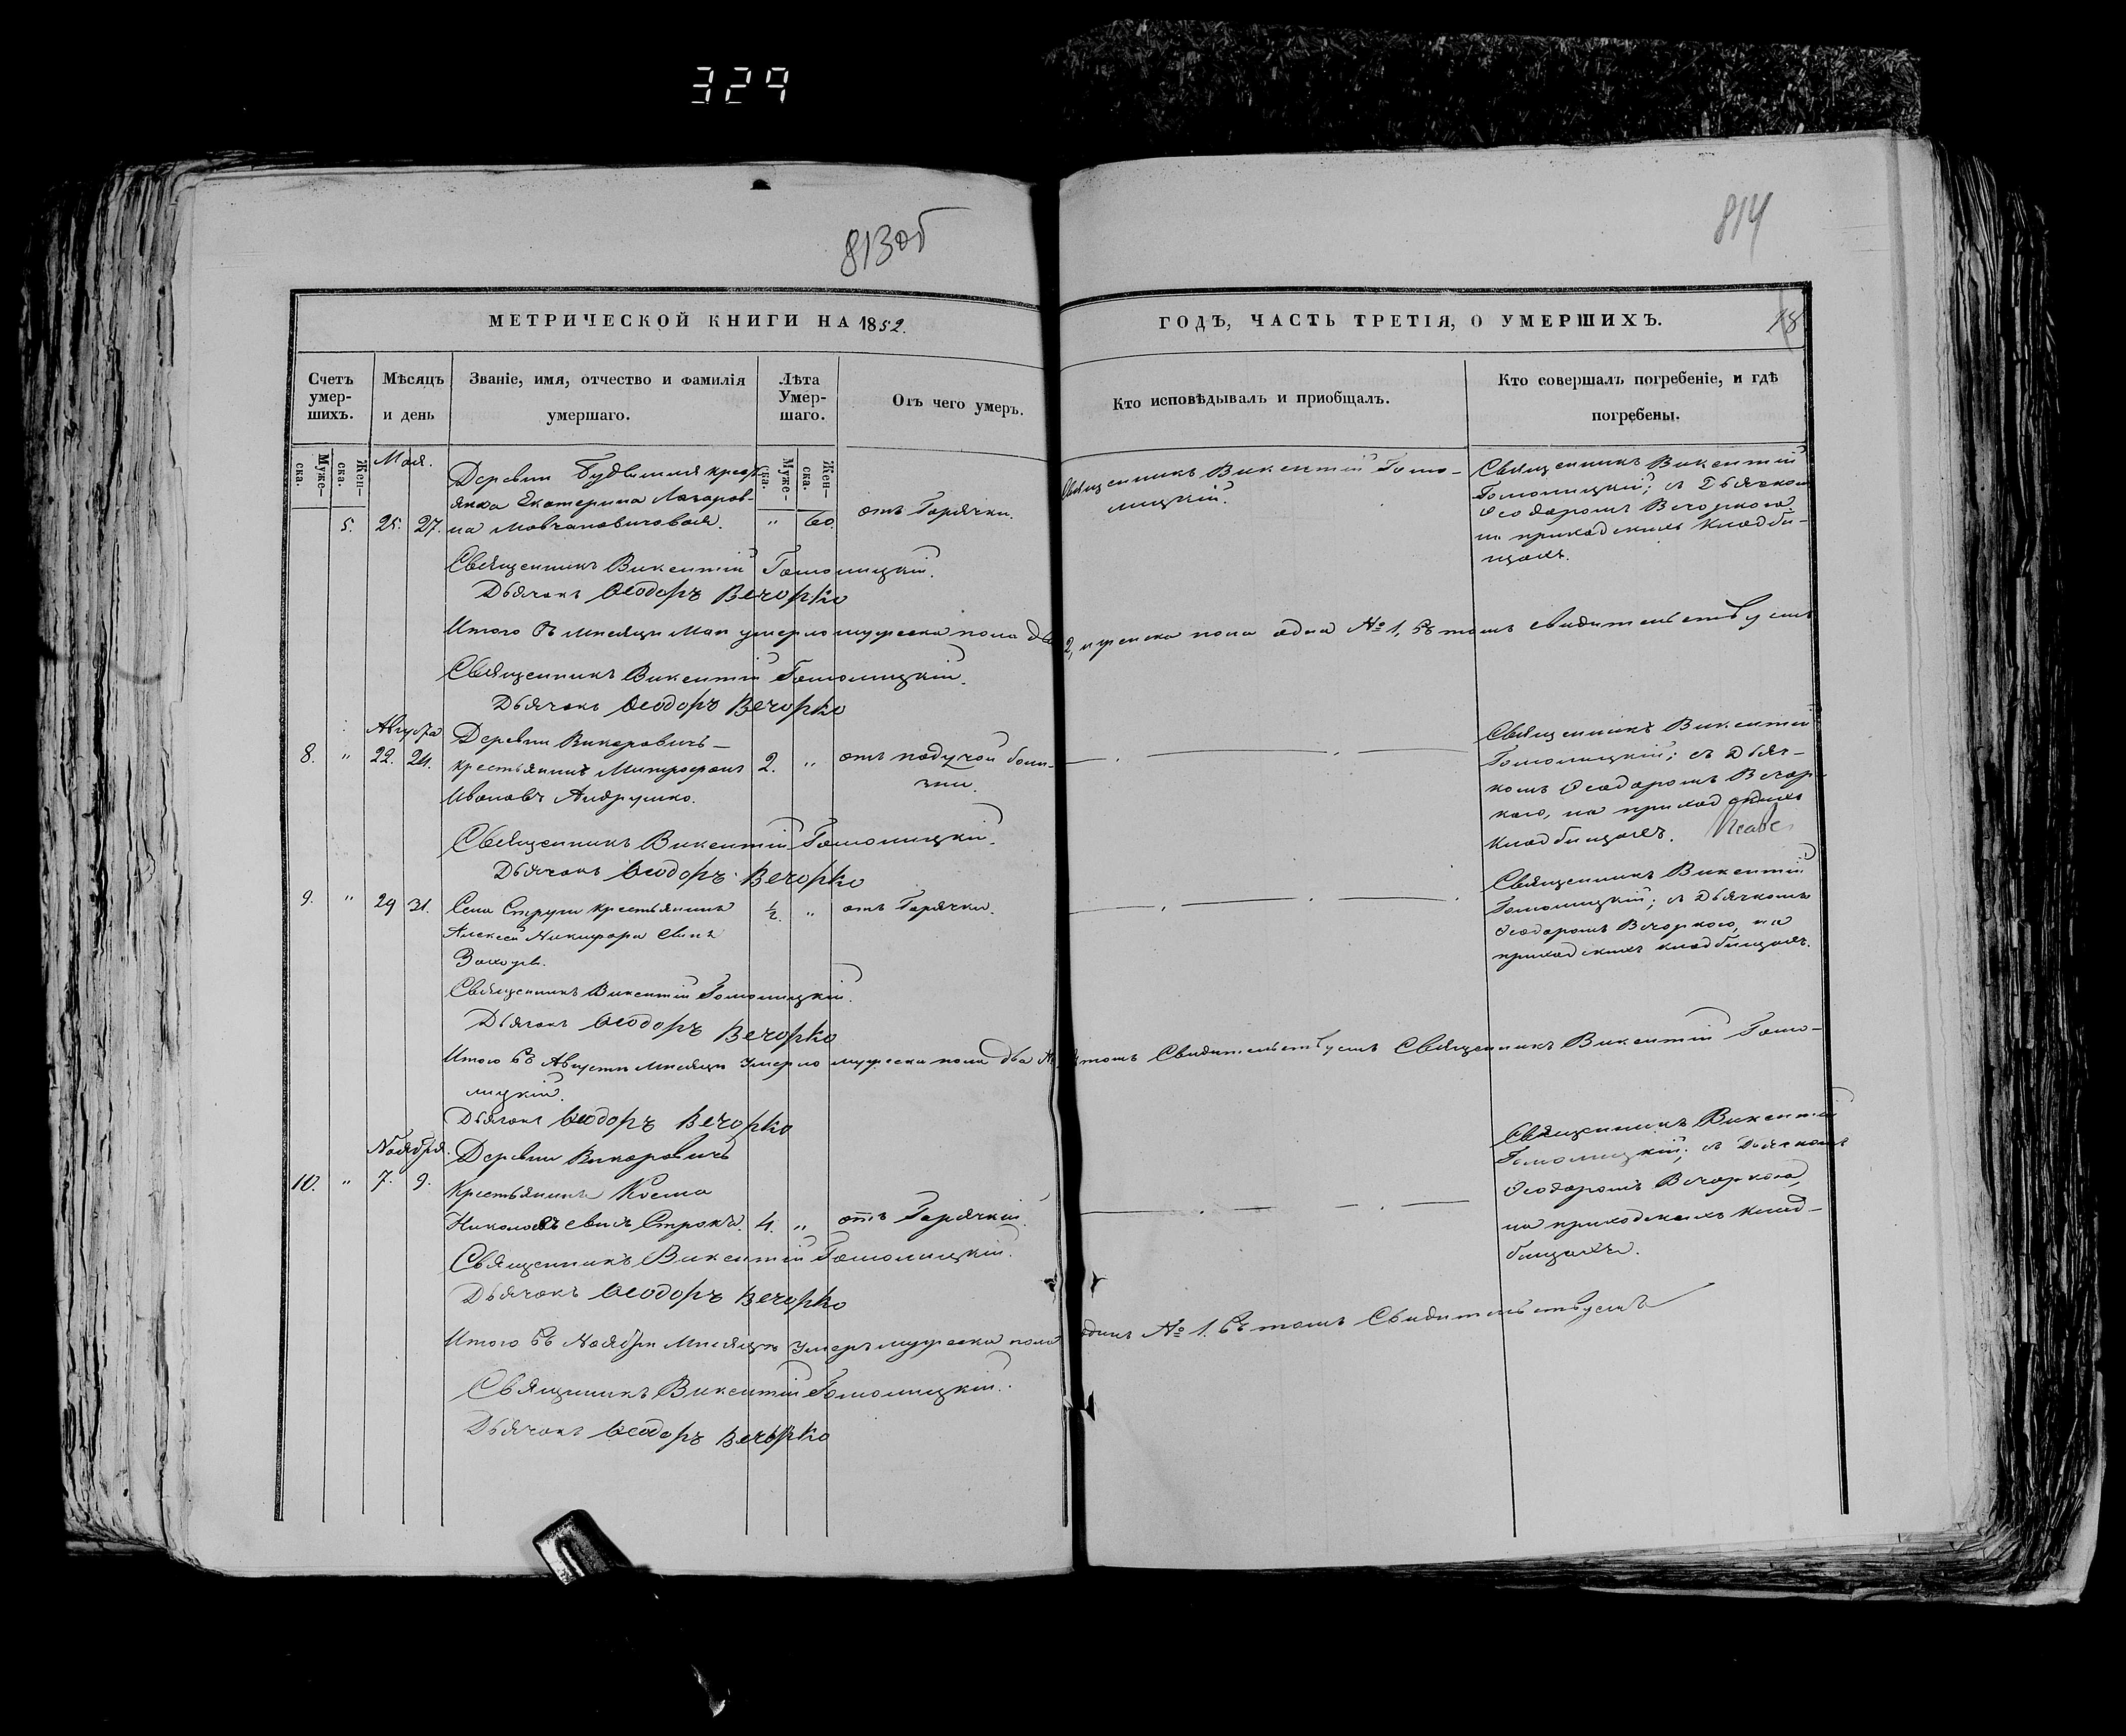 329
813об
814
МЕТРИЧЕСКОЙ КНИГИ НА 1852.
ГОДЪ, ЧАСТЬ ТРЕТІЯ, О УМЕРШИХЪ.
18
Счетъ умер-шихъ.
Мѣсяцъ и день
Званіе, имя, отчество и фамилія умершаго.
Лѣта Умер-шаго.
Отъ чего умеръ.
Кто исповѣдывалъ и приобщалъ.
Кто совершалъ погребеніе, и гдѣ погребены.
Муже-ска.
Жен-ска.
Муже-ска.
Жен-ска.
Мая.
Деревни
янка Екатерина Лазаров-
5. 25. 27. на Мовчановичовая. " 60. отъ Горячки.
Священникъ Викентій Гомо-
лицкій.
Священникъ Викентій
Гомолицкій; съ Дьячкомъ
Ѳеодоромъ Вечоркою,
на приходскихъ кладби-
щахъ.
Священникъ Викентій Гомолицкій.
Дьячокъ Ѳеодоръ Вечорко
Итого въ Мѣсяцѣ Маѣ умерло мужеска пола два 2, и женска пола одна № 1, въ томъ свидѣтельствуемъ
Священникъ Викентій Гомолицкій.
Дьячокъ Ѳеодоръ Вечорко
Августа
Деревни Викоровичъ
8. " 22. 24. крестьянинъ Митрофанъ 2. " отъ падучой болѣ-
зни.
Ивановъ Андрушко.
Священникъ Викентій
Гомолицкій; съ Дьяч-
комъ Ѳеодоромъ Вечор-
кою, на приходскихъ
кладбищахъ.
Священникъ Викентій Гомолицкій.
Дьячокъ Ѳеодоръ Вечорко
9. " 29 31. Села Струги крестьянинъ 1/2. " отъ Горячки.
Алексей Никифора сынъ
Священникъ Викентій
Гомолицкій; съ Дьячкомъ
Ѳеодоромъ Вечоркою, на
приходскихъ кладбищахъ.
Священникъ Викентій Гомолицкій.
Дьячокъ Ѳеодоръ Вечорко
Итого въ Августѣ Мѣсяцѣ Умерло мужеска пола два томъ Свидѣтельствуемъ Священникъ Викентій Гомо-
лицкій.
Дьячокъ Ѳеодоръ Вечорко
Ноября.
Деревни Викоровичъ
10. " 7. 9. Крестьянинъ Косма
Николаевъ сынъ Строкъ. 4. " отъ Горячки.
Священникъ Викентій
Гомолицкій; съ Дьячкомъ
Ѳеодоромъ Вечоркою,
на приходскихъ клад-
бищахъ.
Священникъ Викентій Гомолицкій.
Дьячокъ Ѳеодоръ Вечорко
Итого въ Ноябрѣ Мѣсяцѣ Умеръ мужеска пола одинъ № 1. въ томъ Свидѣтельствуемъ
Священникъ Викентій Гомолицкій.
Дьячокъ Ѳеодоръ Вечорко